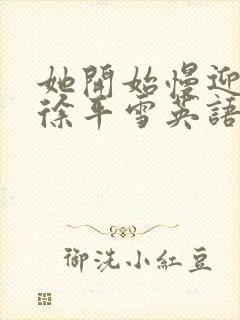 她開始慢迎
徐平雪英語
御洗小紅豆